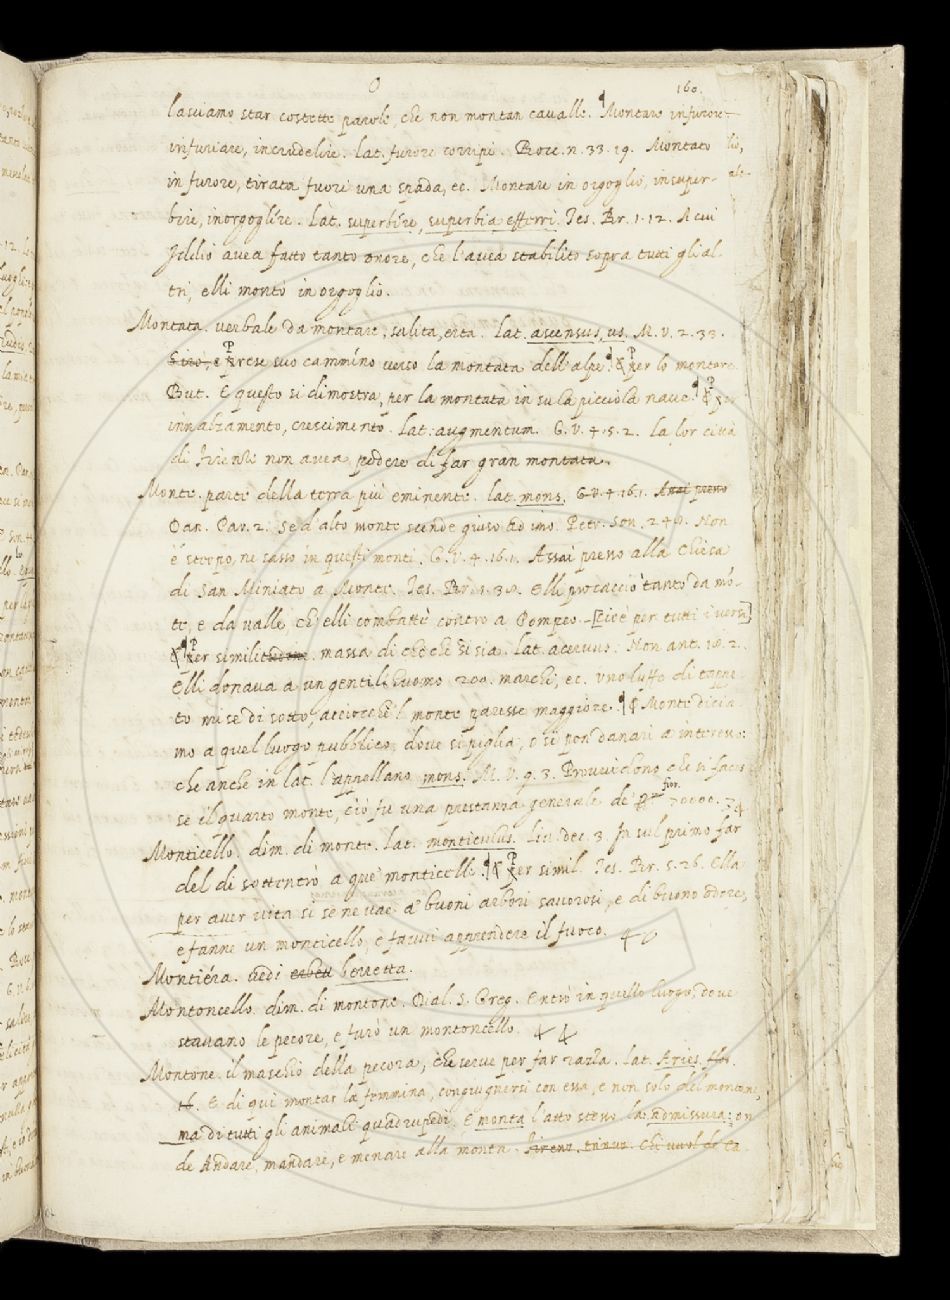 O 160.
lasciamo star costette parole, che non montan cavalle. Montare in furore
infuriare, incrudelire. lat. furore corripi. Bocc. n. 33. 19. Montato
in furore, tirata fuori una spada, ec. Montare in orgoglio, insuper-
bire, inorgoglire. Lat. superbire, superbia efferri. Tes. Br. 1. 12. A cui
Iddio avea fatto tanto onore, che l'avea stabilito sopra tutti gl'al
tri, elli montò in orgoglio.
Montata. verbale da montare, salita, erta. lat. ascensus, us. M. V. 2. 33.
e Prese suo cammino verso la montata dell'alpe. Per lo montare
But. E questo si dimostra, per la montata in su la piccola nave. per
innalzamento, crescimento. lat. augmentum. G. V. 4. 5. 2. la lor città
di Firenze non avea podere di far gran montata.
Monte. parte della terra più eminente. lat. mons. G. V. 4. 16. 1. Assai presso
Dan. Par. 2. Se d'alto monte scende giuso ad imo. Petr. Son. 240. Non
è sterpo, ne sasso in questi monti. G. V. 4. 16. 1. Assai presso alla Chiesa
di San Miniato a Monte. Tes. Br. 1. 30. Elli procacciò tanto da mō-
te, e da valle ch'elli combattè contro a Pompeo. [cioè per tutti i versi]
Per similit massa di che che si sia. Lat. acervus. Non ant. 18. 2.
Elli donava a un gentilhuomo 200. marchi, ec.
to mise di sotto, acciocchè 'l monte paresse maggiore. Monte dicia-
mo a quel luogo pubblico, dove si piglia, o si pon danari a interesse:
che anche in lat. l'appellano mons. M. V. 9. 3. che si faces
se il quarto monte, ciò fu una prestanza generale de' fior. 70000.
Monticello. dim. di monte. lat. monticulus. Liv. dec. 3. In sul primo far
del dì sottentrò a que' monticelli. Per simil. Tes. Br. 5. 26. Ella
per aver vita si se ne vae a' buoni arbori savorosi, e di buono odore,
e fanne un monticello, e favvi apprendere il fuoco.
Montièra. vedi berretta.
Montoncello. dim. di montone. Dial. S. Greg. Entrò in quello luogo, dove
stavano le pecore, e furò un montoncello.
Montone. il maschio della pecora, che serve per far razza. lat. Aries
E di qui montar la femmina, congiugnersi con essa, e non solo del montone,
ma di tutti gli animali quadrupedi. E monta l'atto stesso. la. admissura: on
de Andare, mandare, e menare alla monta.